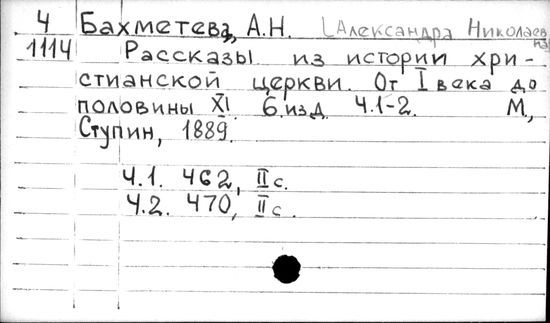 4 Бахметева, А.Н. [Александра Николаев
на]
1114 Рассказы из истории хри-
стианской церкви. От I века до
половины XI. 6.изд. Ч.1-2. М.,
Ступин, 1889.
Ч.1. 462, II с.
Ч.2. 470, II с.